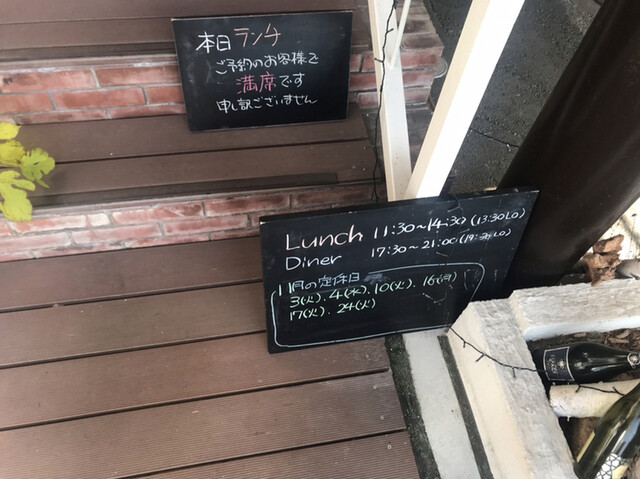 本日ランチ
ご予約のお客様で
満席です
申し訳ございません
Lunch 11:30~14:30 (13:30LO)
Diner 17:30~21:00 (19:30LO)
11月の定休日
3(火)、4(水)、10(火)、16(月)
17(火)、24(火)